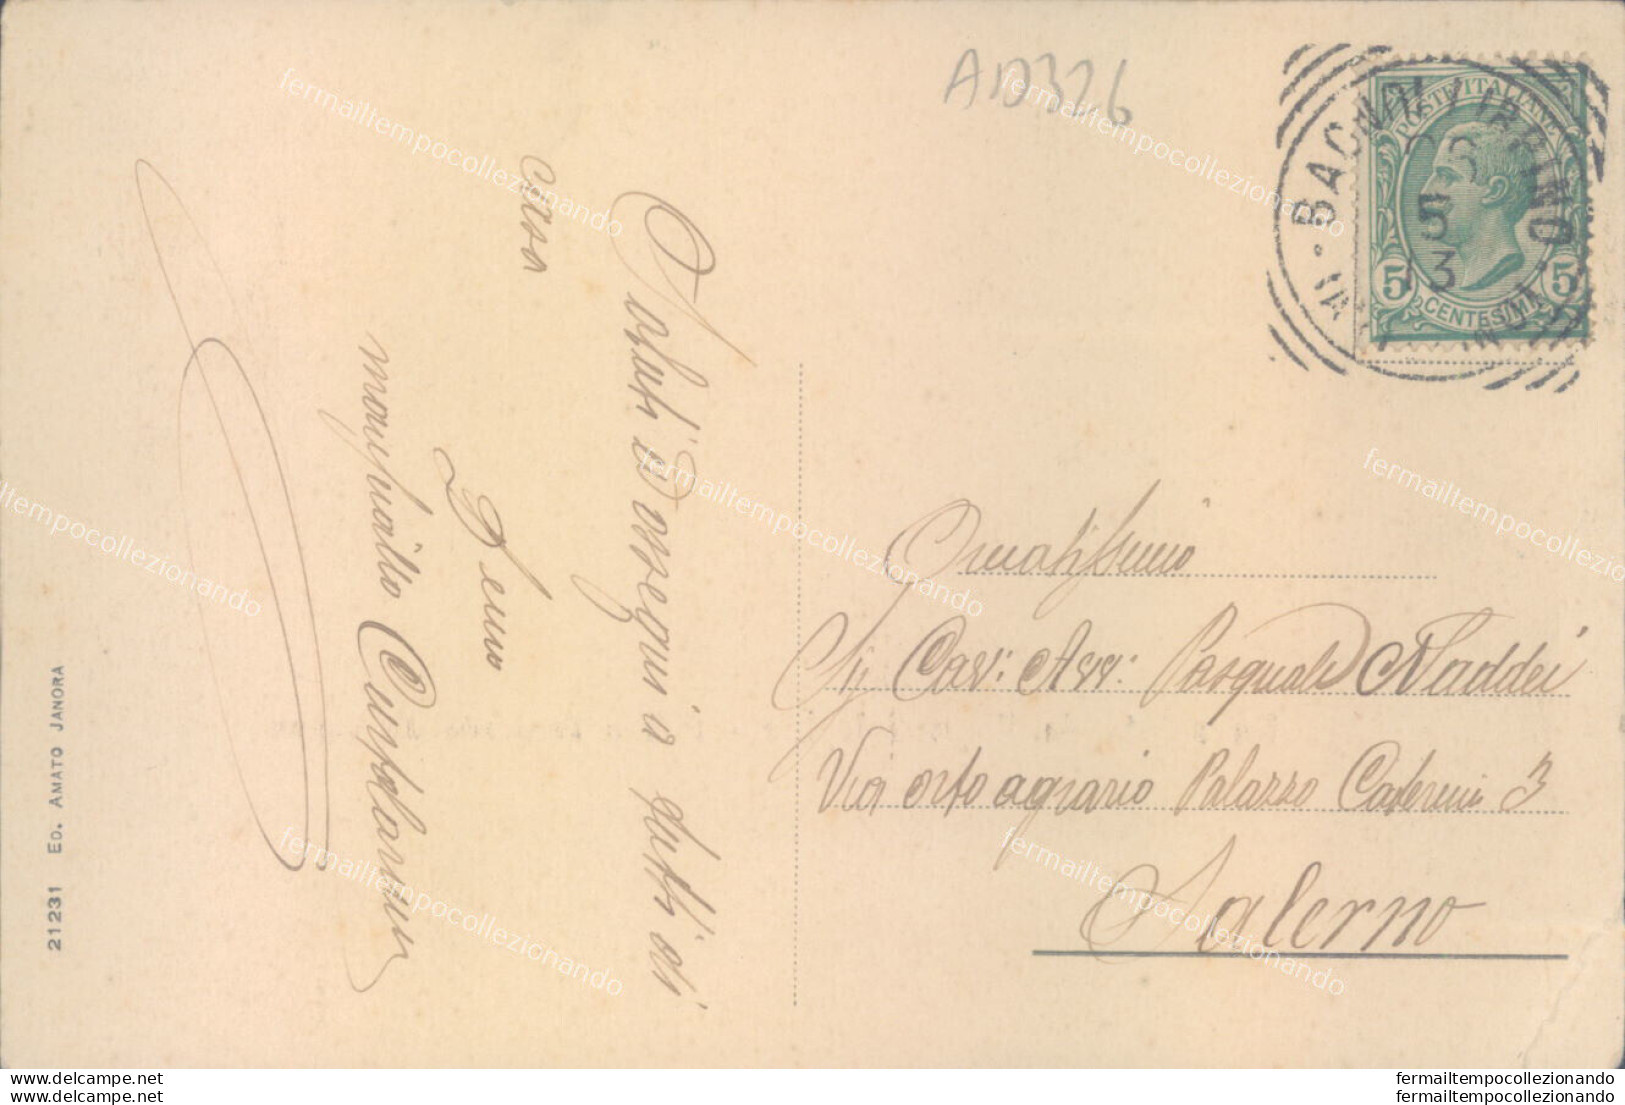 AD326
BAGNOLI IRPINO
5
13
POSTE ITALIANE
5 5
CENTESIMI
Saluti d'ossequi a tutti di
casa
Devmo
Gentilissimo
Sig. Cav: Avv: Pasquale Maddei
Via orto agrario Palazzo Caterini 3
Salerno
21231 ED. AMATO JANORA
fermailtempocollezionando
fermailtempocollezionando
fermailtempocollezionando
fermailtempocollezionando
fermailtempocollezionando
fermailtempocollezionando
fermailtempocollezionando
www.delcampe.net fermailtempocollezionando
www.delcampe.net fermailtempocollezionando